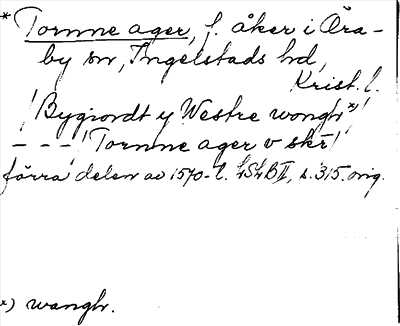 * Tornne ager, f. åker i Öra-
by sn, Ingelstads hd,
Krist. l.
! Bygiordt y Westre wongh*)!
---! Tornne ager v skr!
förra delen av 1570-t. LSLB II, s. 315. orig.
*) wangh.